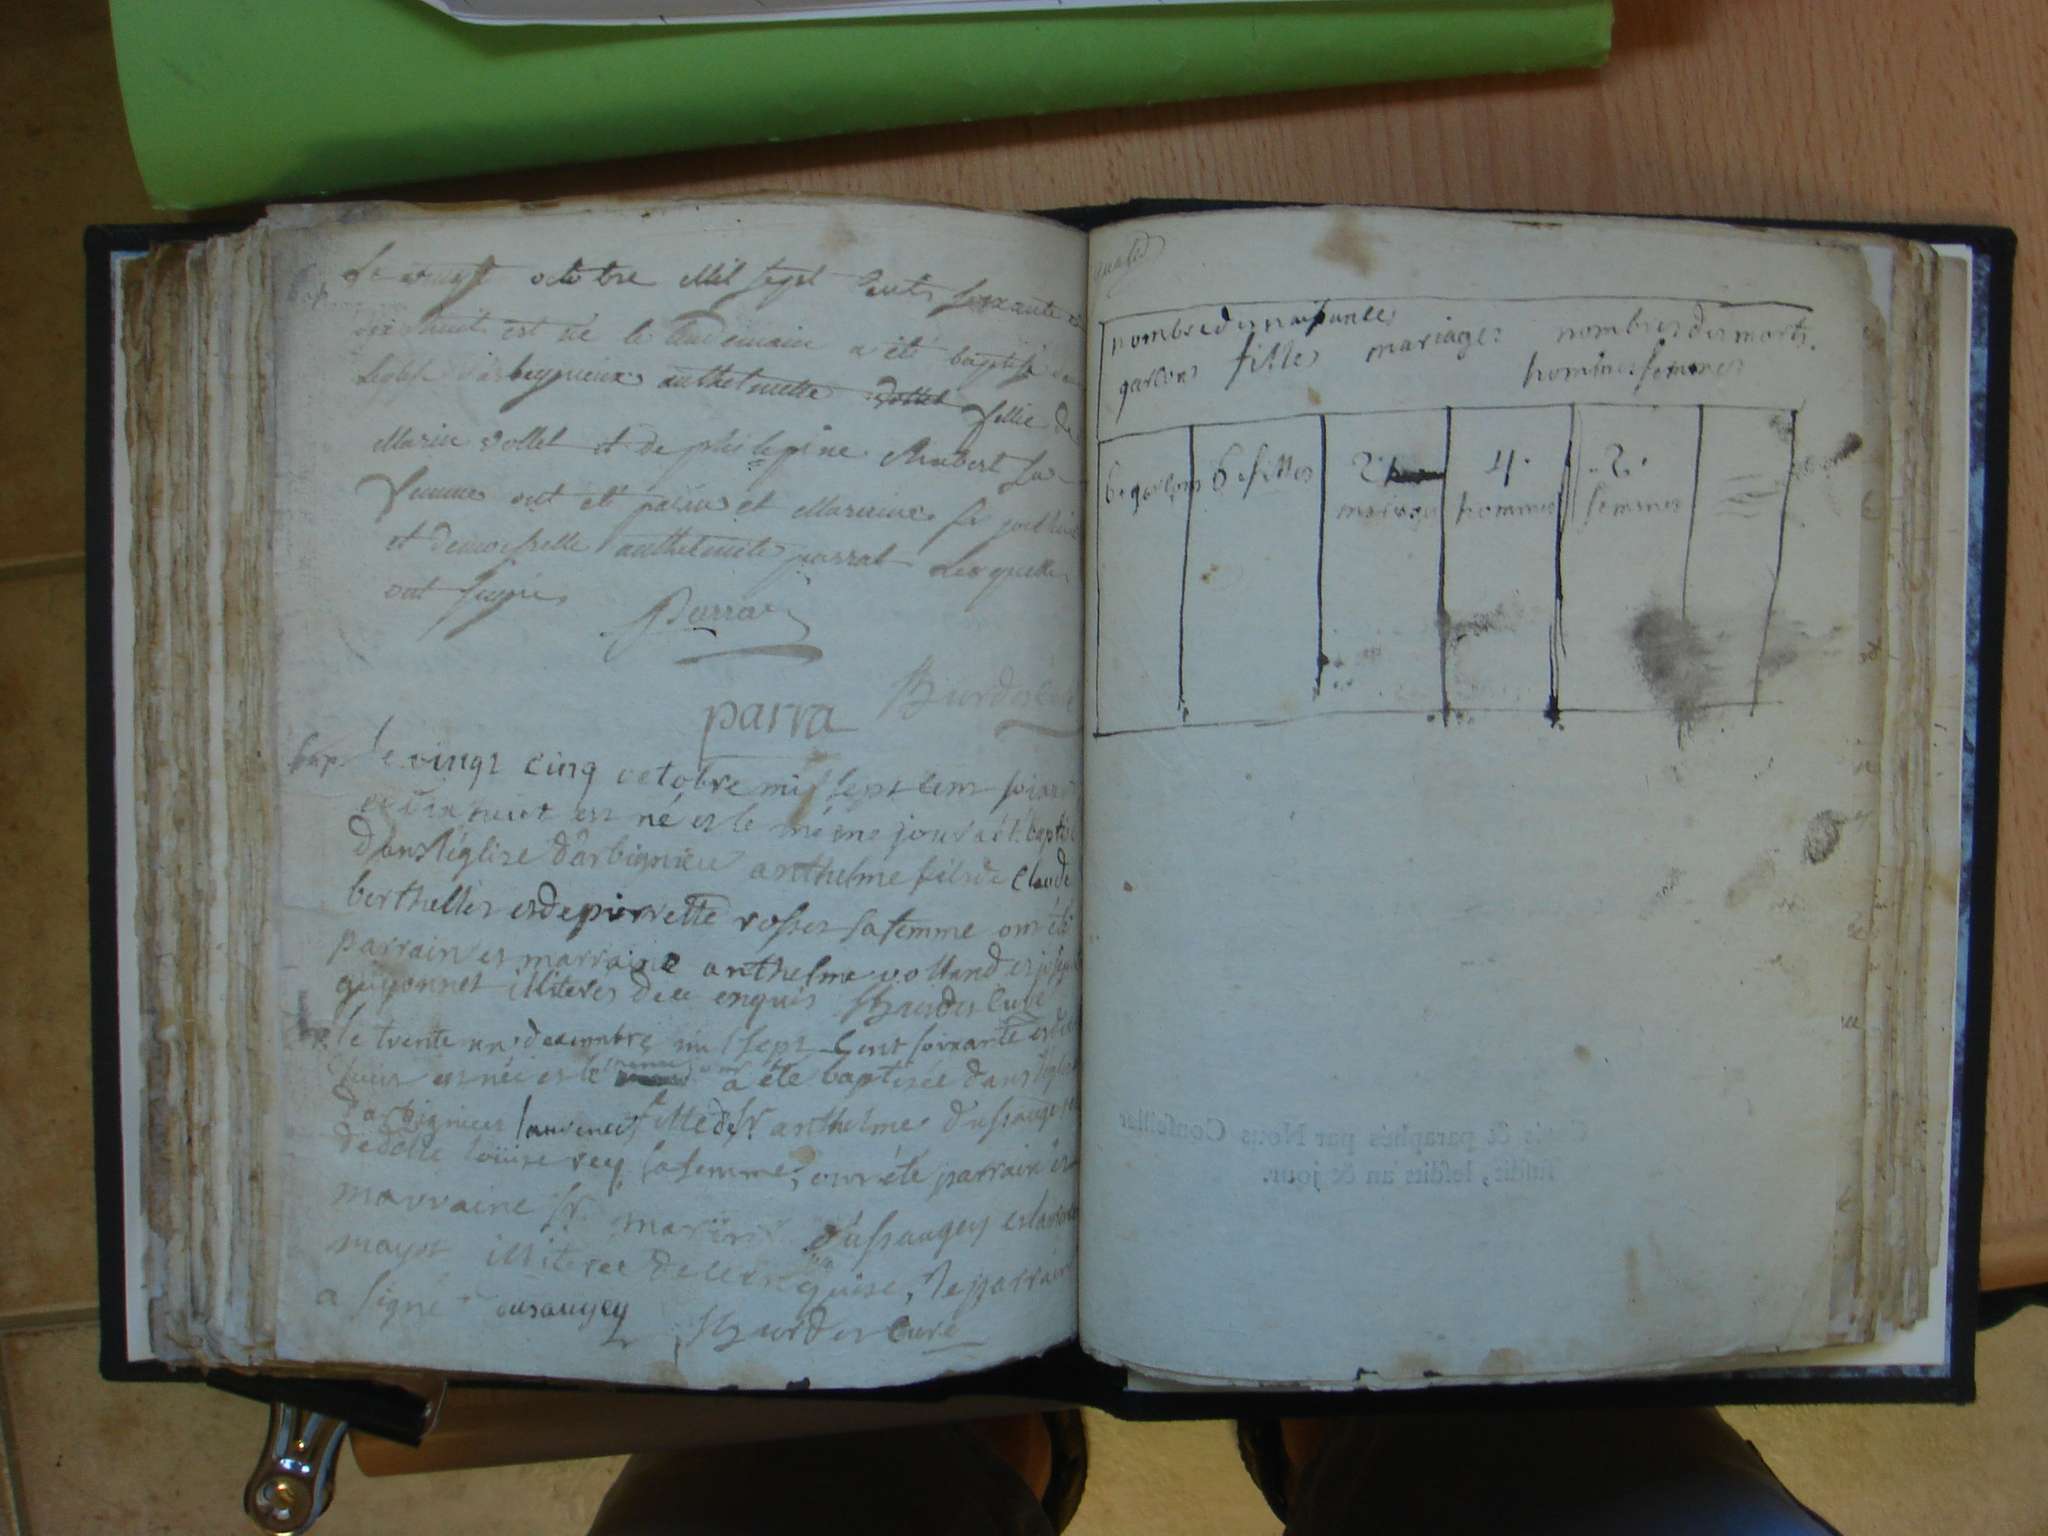 Le vingt octobre Mil sept Cents soixante et
dix huit est né le lendemain a été baptisé dans
Leglise d'arbeyrieux anthelmette vollet fillie de
Marin vollet et de philepine Rubert sa
femme ont été parein et Maraine Sr
et demoiselle anthelmette parrat Lesquelle
ont signés
Parra
parra Burdet Curé
bap. le vingt cinq octobre mil sept cent soixante
et dix huit est né et le même jour a été baptisé
dans l'église d'arbignieu anthelme fils de Claude
berthellier et de pierrette rosset sa femme ont été
parrain et marraine anthelme volland et josephe
guyonnet illiteres de ce enquis Burdet Curé
bap. le trente un decembre mil sept Cent soixante et dix
huit est née et le a été baptisée dans l'église
d'arbignieu laurence fille de Sr anthelme dusaugey et
de dlle loüise rey sa femme, ont été parrain et
marraine Sr marin dusaugey et laurence
mayet illiteree de ce enquise, le parrain
a signé dusaugey Burdet Curé
nombre des naissances
garcons filles mariages nombres des morts.
hommes femmes
6 garcons 6 filles 2 mariages 4. hommes .2. femmes
Cotés & paraphés par Nous Conseiller
susdit, lesdits an & jour.